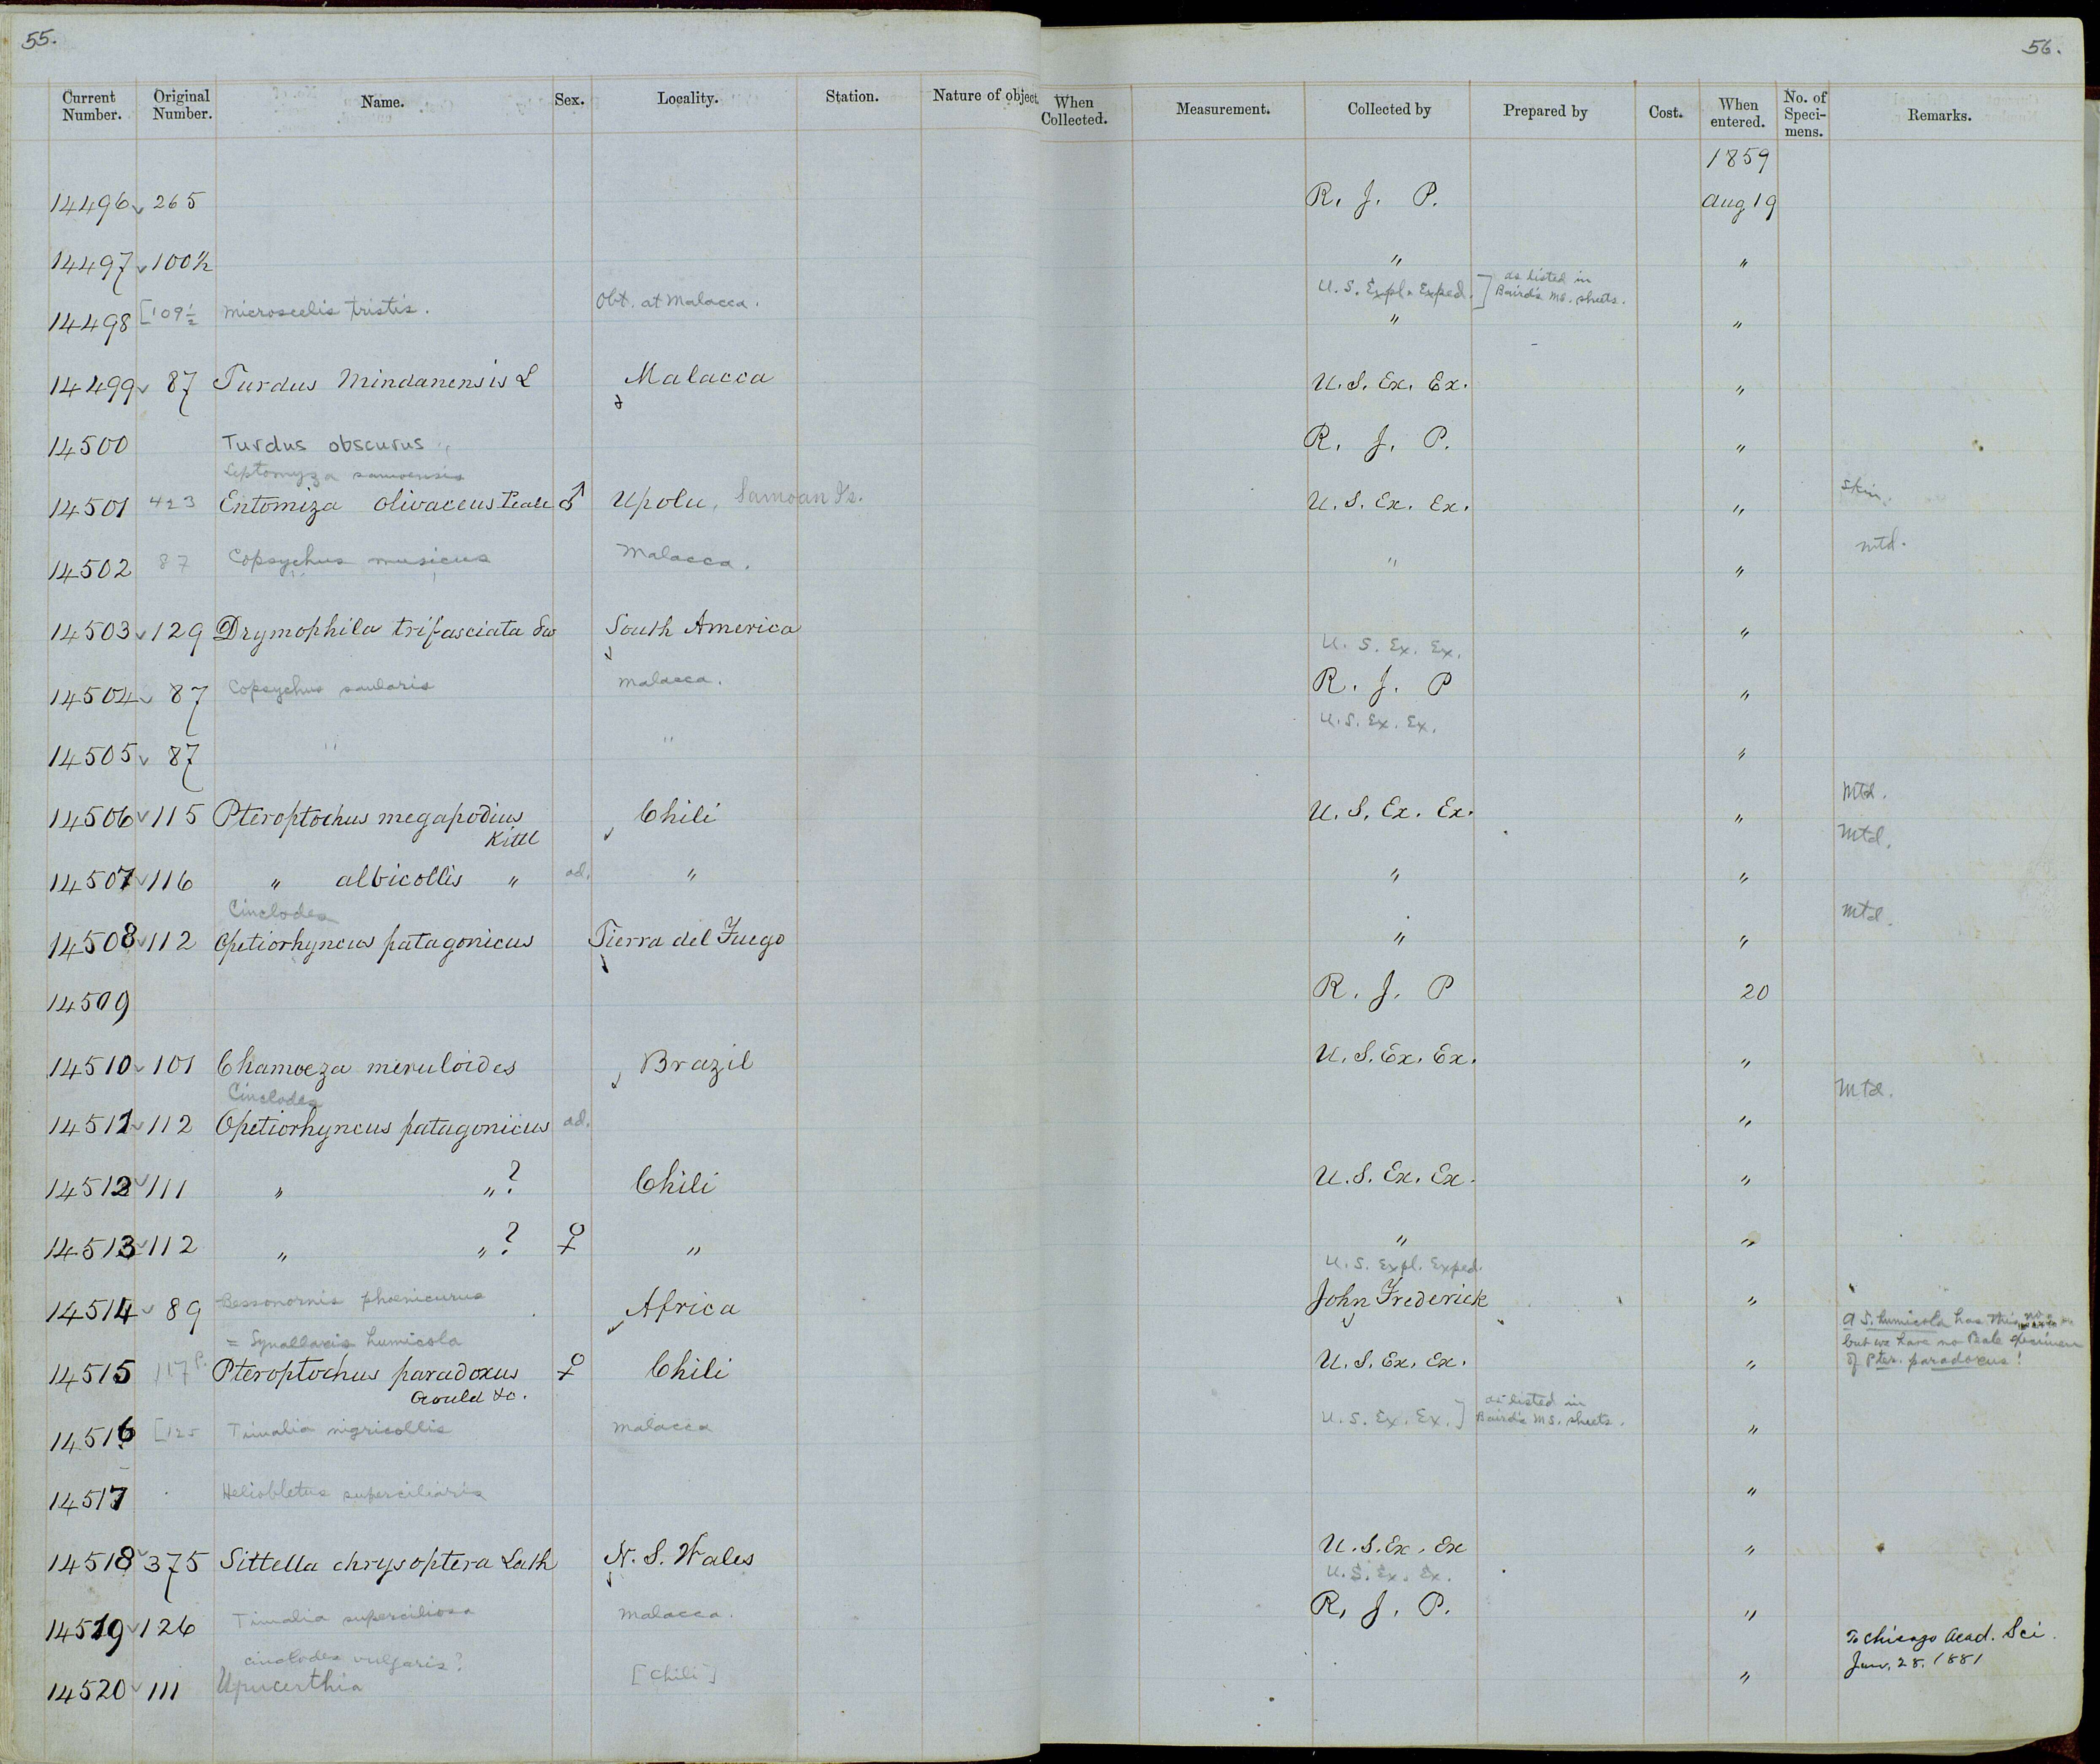 55.
56.
Current Number. Original Number. Name. Sex. Locality. Station. Nature of object. When Collected. Measurement. Collected by Prepared by Cost. When entered. No. of Specimens. Remarks.
1859
14496 265 R. J. P. Aug 19
14497 100½ " "
U.S. Expl. Exped. ] as listed in Baird's MS. sheets.
14498 [109½ Microscelis tristis. Obt. at Malacca. " "
14499 87 Turdus Mindanensis L Malacca U.S. Ex. Ex. "
14500 Turdus obscurus R. J. P. "
Leptomyza samoensis
14501 423 Entomiza olivaceus Peale ♂ Upolu, Samoan Is. U.S. Ex. Ex. " Skin.
14502 87 Copsychus musicus Malacca. " " mtd.
14503 129 Drymophila trifasciata Sw South America "
U.S. Ex. Ex.
14504 87 Copsychus saularis Malacca. R. J. P "
U.S. Ex. Ex.
14505 87 " " "
14506 115 Pteroptochus megapodius Kittl Chili U.S. Ex. Ex. " Mtd.
14507 116 " albicollis " ad. " " " Mtd.
Cinclodes
14508 112 Opetiorhyncus patagonicus Tierra del Fuego " " Mtd.
14509 R. J. P 20
14510 101 Chamoeza meruloides Brazil U.S. Ex. Ex. "
Cinclodes
14511 112 Opetiorhyncus patagonicus ad. " Mtd.
14512 111 " " ? Chili U.S. Ex. Ex. "
14513 112 " " ? ♀ " " "
U.S. Expl. Exped.
14514 89 Bessonornis phoenicurus Africa John Frederick "
= Synallaxis humicola
14515 117 Pteroptochus paradoxus ♀ Chili U.S. Ex. Ex. " a S. humicola has this no. but we have no Peale specimen of Pter. paradoxus!
Gould &c.
14516 [125 Timalia nigricollis Malacca U.S. Ex. Ex. ] as listed in Baird's MS. sheets. "
14517 Heliobletus superciliaris "
14518 375 Sittella chrysoptera Lath N. S. Wales U.S. Ex. Ex "
U.S. Ex. Ex.
14519 126 Timalia superciliosa Malacca. R. J. P. "
cinclodes vulgaris?
14520 111 Upucerthia [Chili] " To Chicago Acad. Sci. Jan. 28. 1881